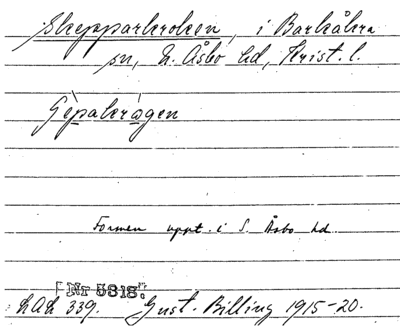 Skepparkroken, i Barkåkra
sn, N. Åsbo hd, Krist. l.
Gèpakrågen
Formen uppt. i S. Åsbo hd.
[Nr 5818.]
LAL 339. Gust. Billing 1915-20.